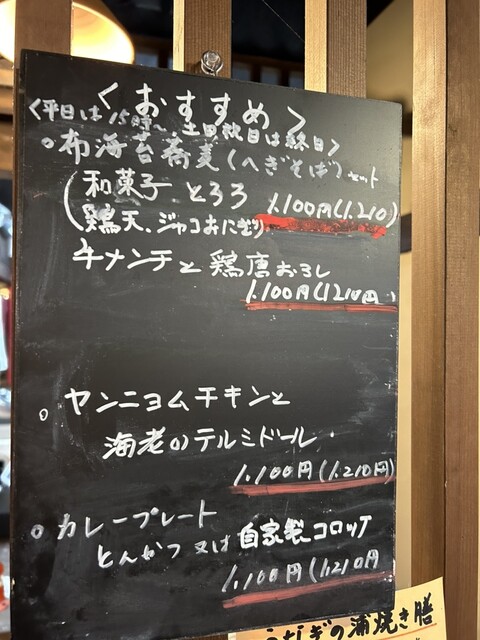 <おすすめ>
<平日は15時〜 土日祝日は終日>
○布海苔蕎麦(へぎそば)セット
(和菓子 とろろ
(鶏天、ジャコおにぎり) 1.100円(1.210)
牛メンチと鶏唐おろし
1.100円(1210円)
○ ヤンニョムチキンと
海老のテルミドール
1.100円(1.210円)
○ カレープレート
とんかつ又は自家製コロッケ
1.100円(1.210円
うなぎの蒲焼き膳